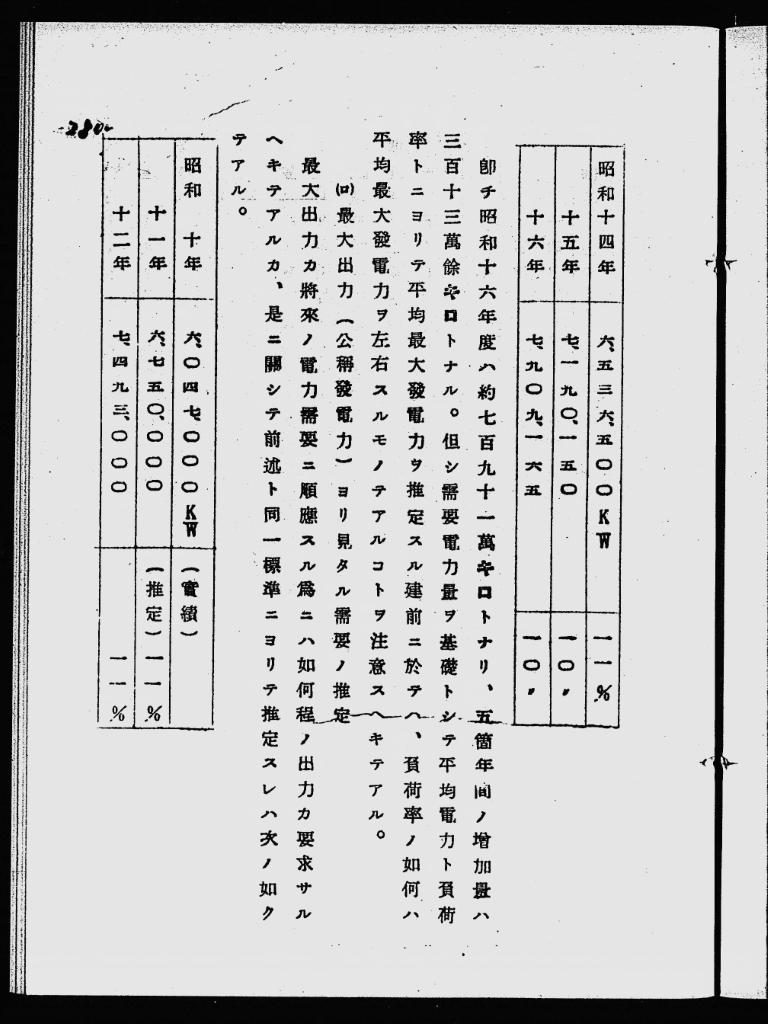 昭和十四年 六、五三六、五〇〇KW 一一%
十五年 七、一九〇、一五〇 一〇〃
十六年 七、九〇九、一六五 一〇〃
卽チ昭和十六年度ハ約七百九十一萬キロトナリ、五箇年間ノ增加量ハ
三百十三萬餘キロトナル。但シ需要電力量ヲ基礎トシテ平均電力ト負荷
率トニヨリテ平均最大發電力ヲ推定スル建前ニ於テハ、負荷率ノ如何ハ
平均最大發電力ヲ左右スルモノテアルコトヲ注意スヘキテアル。
(ロ)最大出力(公稱發電力)ヨリ見タル需要ノ推定
最大出力カ將來ノ電力需要ニ順應スル爲ニハ如何程ノ出力カ要求サル
ヘキテアルカ、是ニ關シテ前述ト同一標準ニヨリテ推定スレハ次ノ如ク
テアル。
昭和 十年 六、〇四七、〇〇〇KW (實績)
十一年 六、七五〇、〇〇〇 (推定) 一一%
十二年 七、四九三、〇〇〇 一一%
-280-